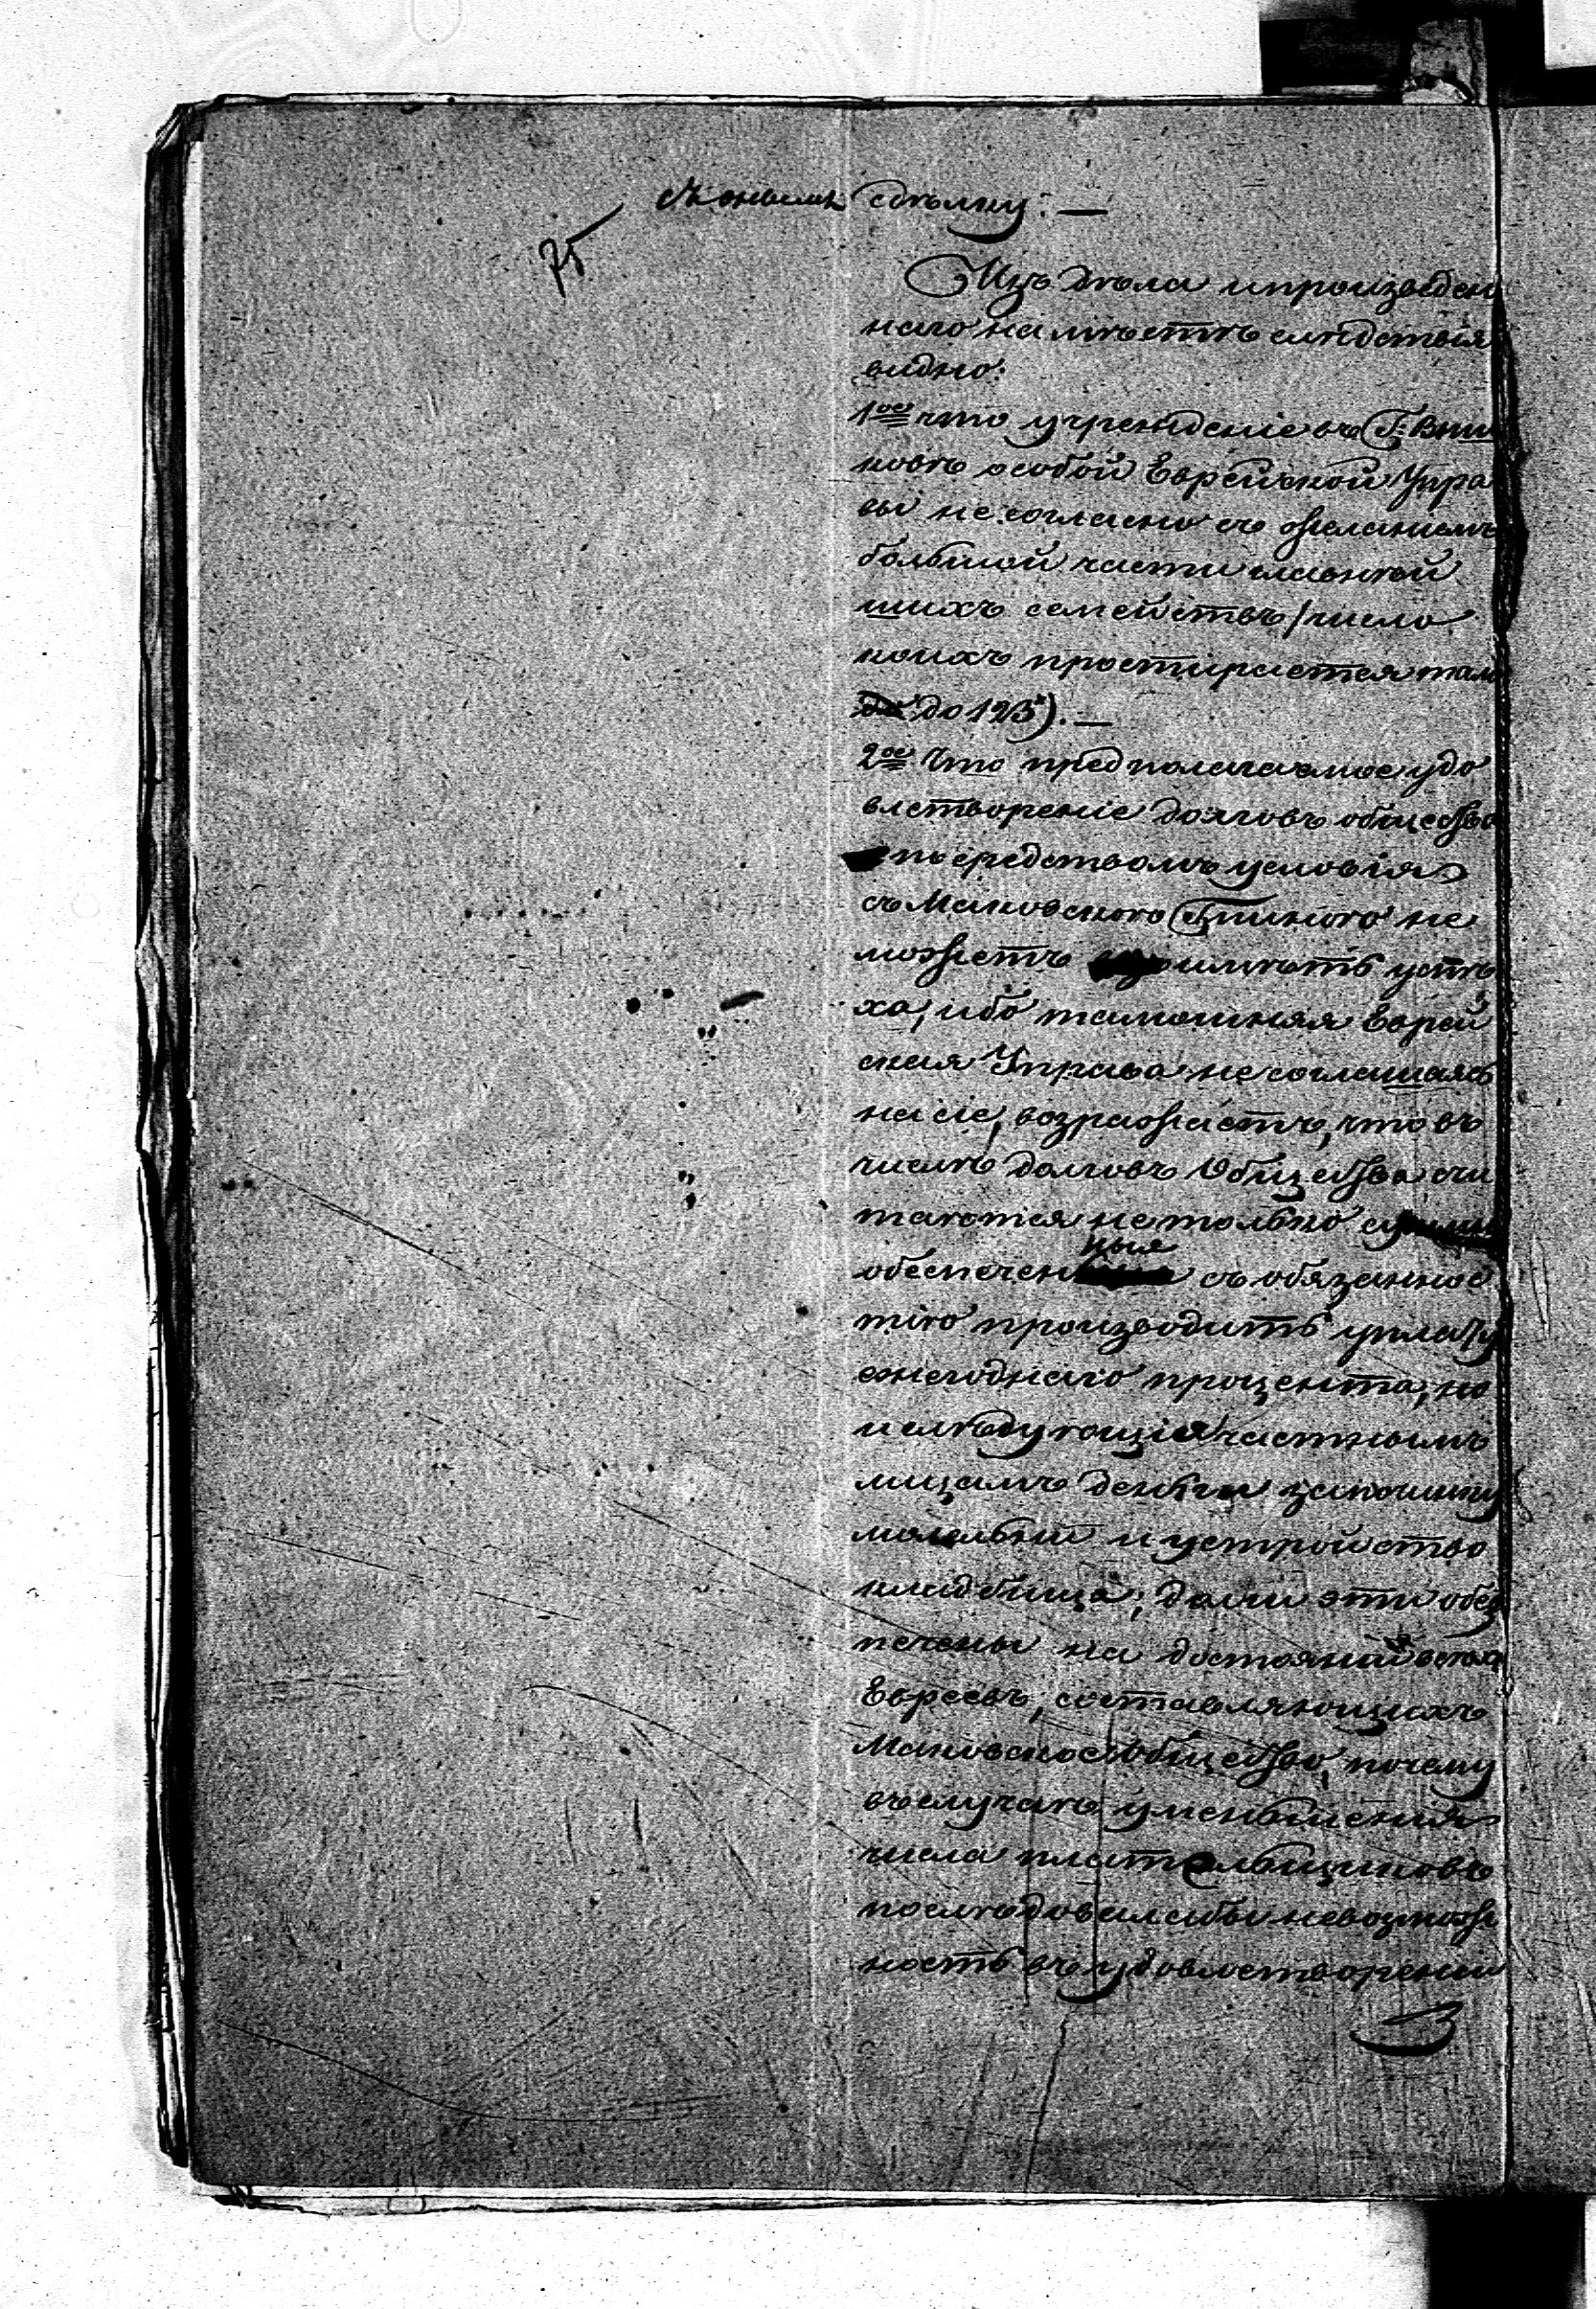 сдѣлку: —
75
Изъ дѣла и произведен
наго на мѣстѣ слѣдствія
видно:
1ое что учрежденіе въ Г:
ковѣ особой Еврейской Упра
вы не согласно съ желаніемъ
большой части главнѣй
шихъ семействъ /число
коихъ простирается там
до до 123). —
2ое Что предполагаемое удо
влетвореніе долговъ общества
посредствомъ условія
съ Маковскою Гминою не
можетъ имѣть успѣ
ха, ибо тамошняя Еврей
ская Управа не соглашаясь
на сіе, возражаетъ, что въ
числѣ долговъ Общества счи
таются не только суммы
обеспеченныя съ обязаннос
тію производить уплату
ежегоднаго процента, но
и слѣдующія частнымъ
лицамъ деньги за починку
молельни и устройство
кладбища; долги эти обез
печены на достояніи всѣхъ
Евреевъ, составляющихъ
Маковское Общество, почему
въ случаѣ уменьшенія
числа плательщиковъ
послѣдовала бы невозмож
ность въ удовлетвореніи